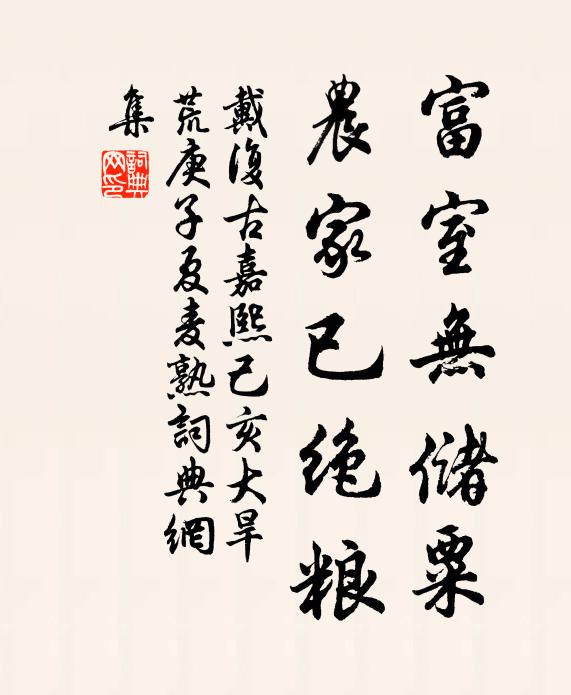 富室無儲粟
農家已絕粮
戴復古嘉熙己亥大旱
荒庚子夏麦熟詞典網
集
詞典网印